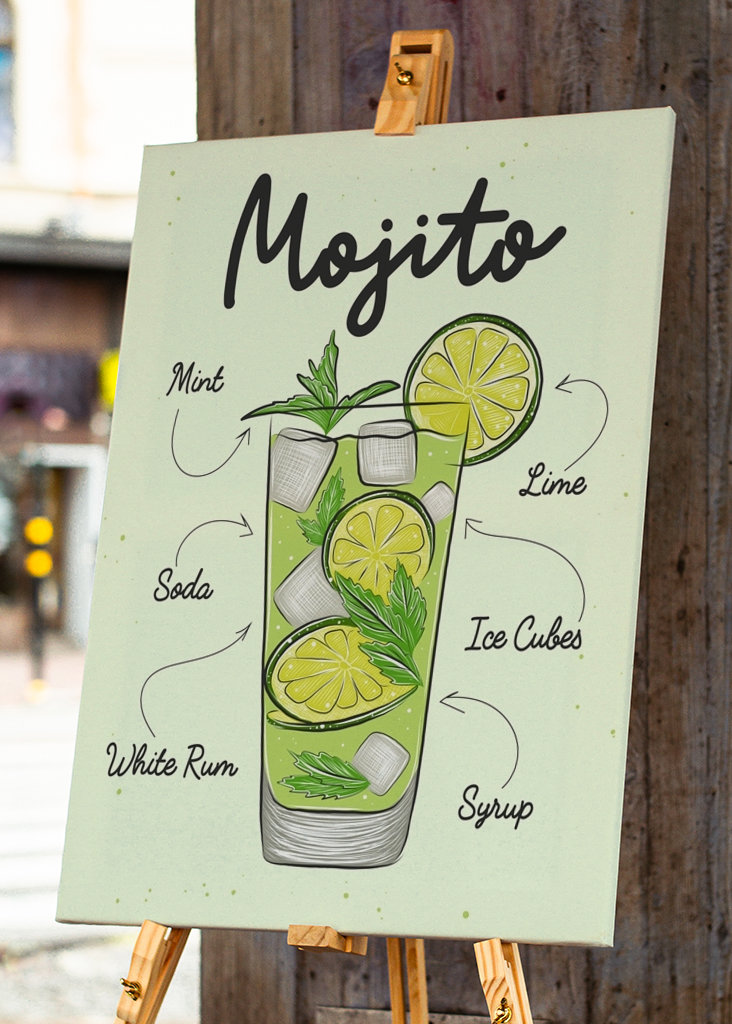 Mojito
Mint
Lime
Soda
Ice Cubes
White Rum
Syrup